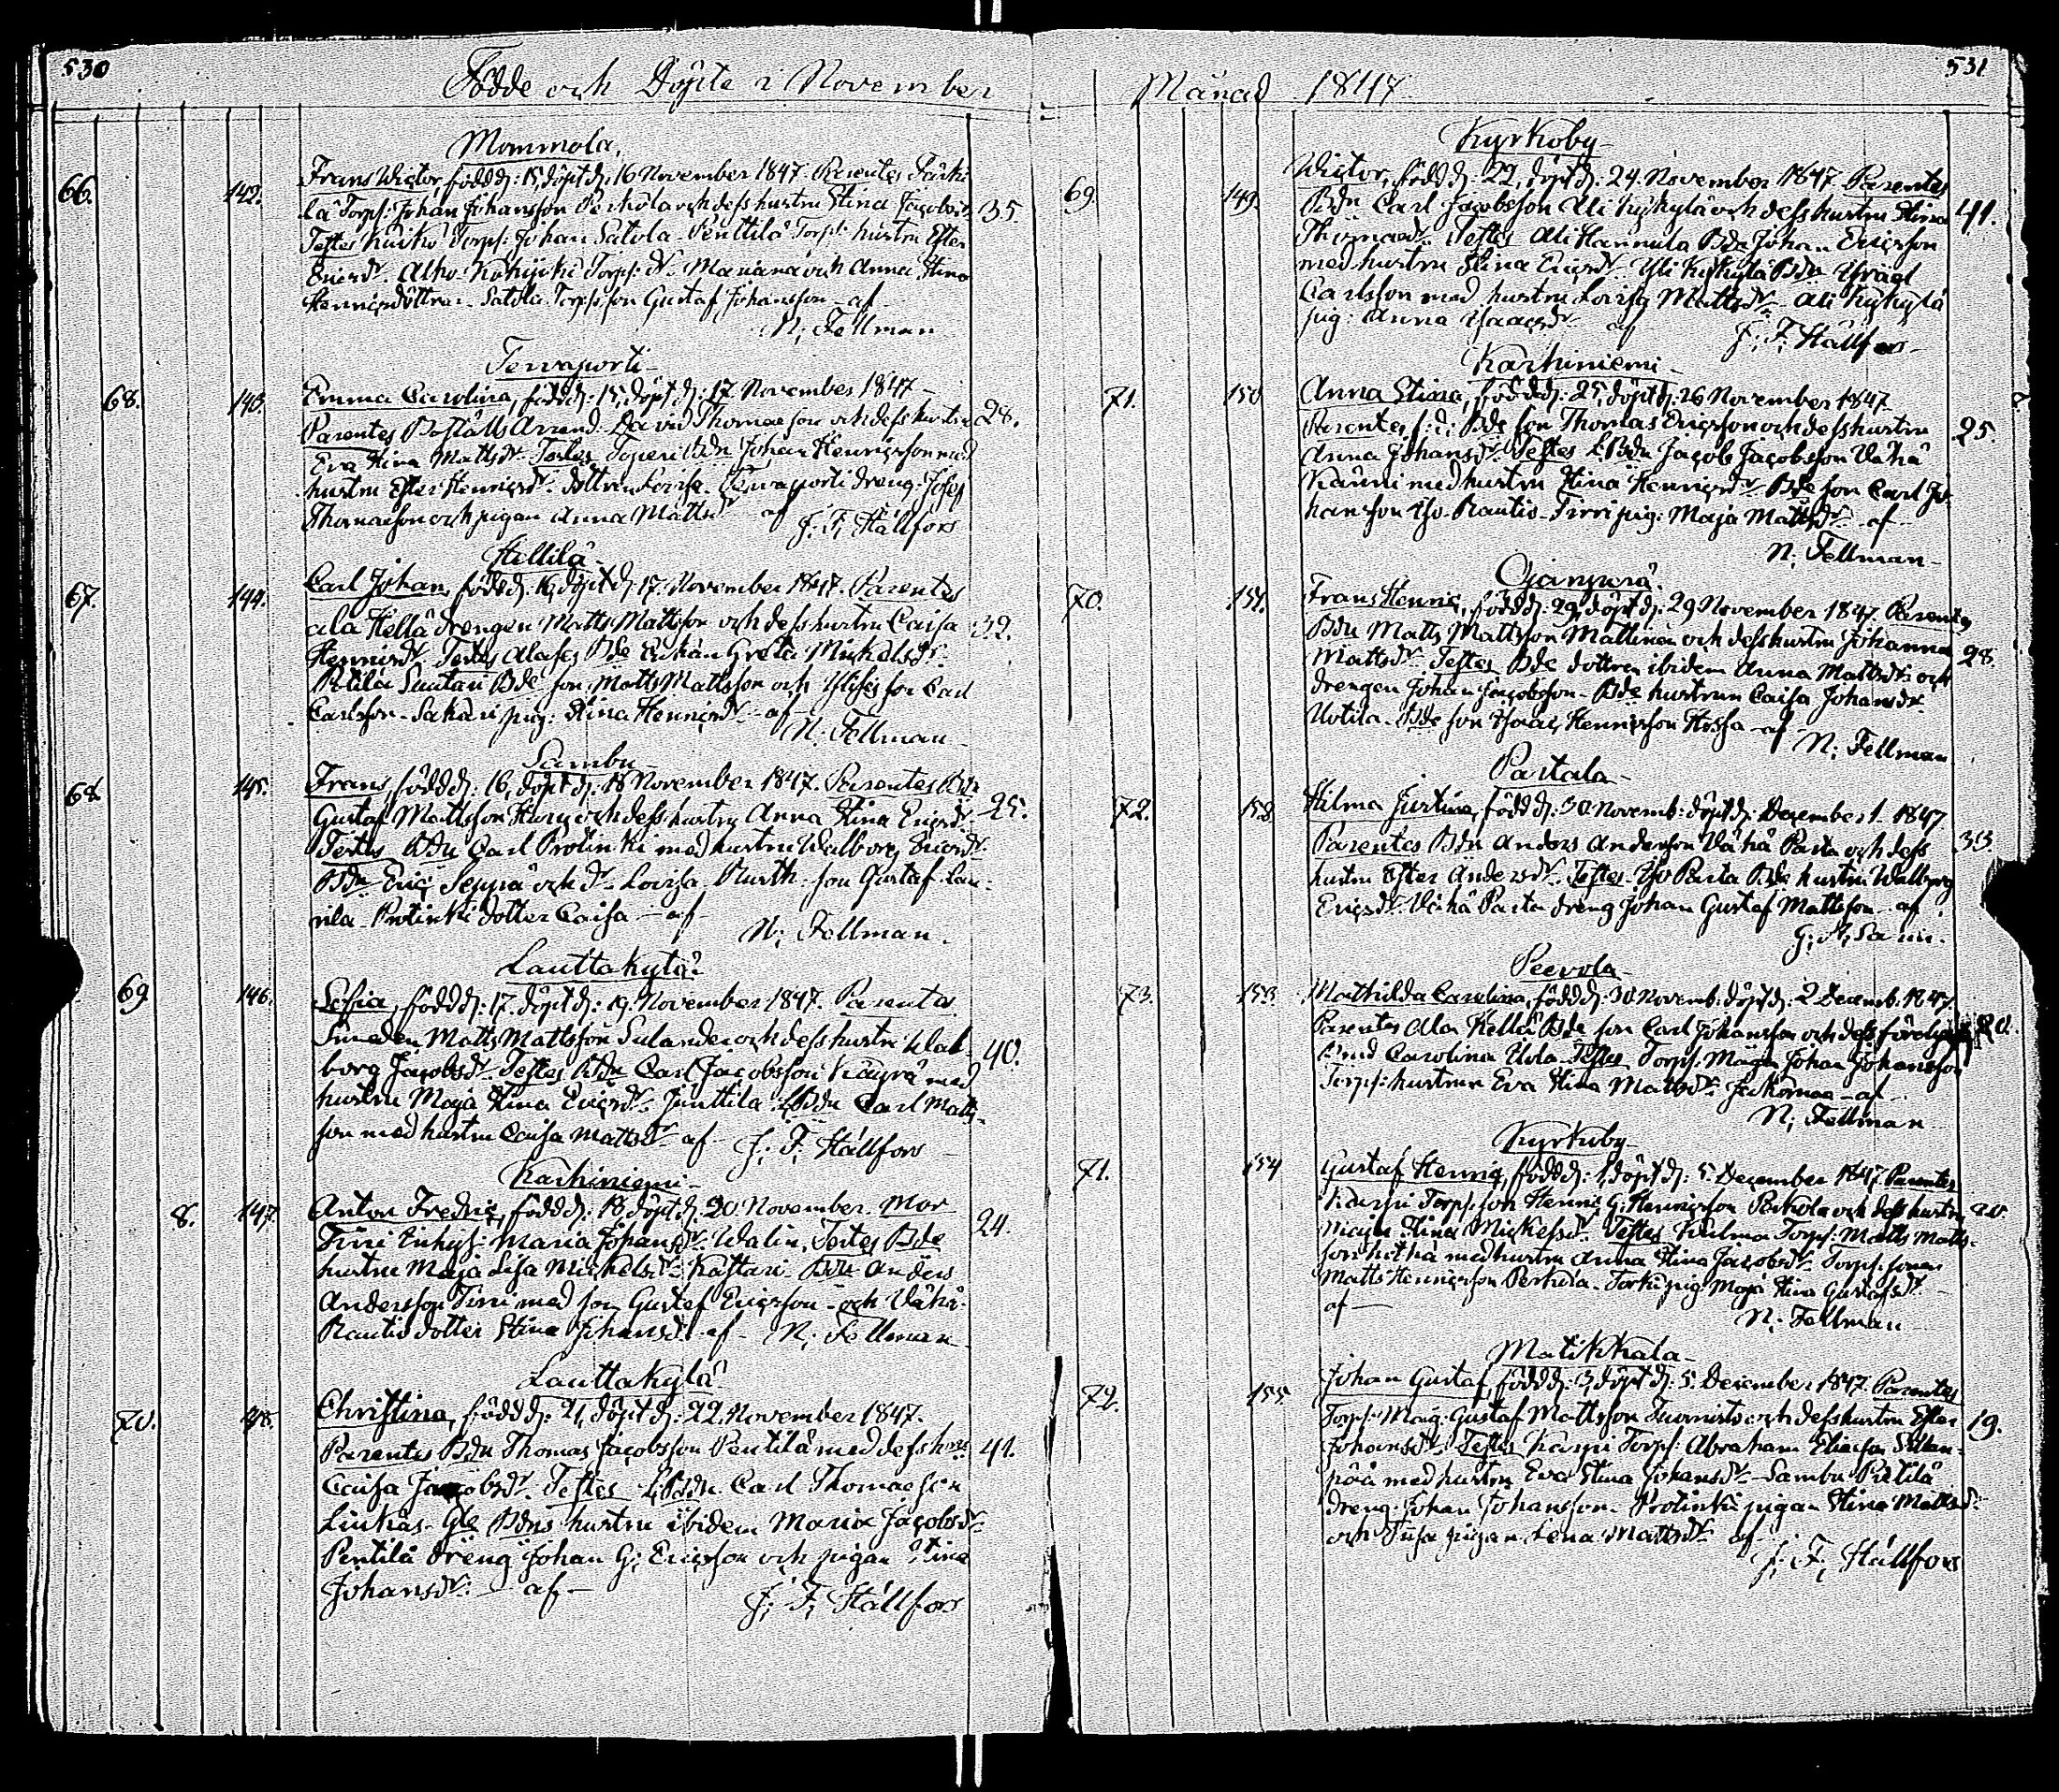 530
Födde och Döpte i November
Mommola,
66. 142. Frans Wictor, född d: 15, döpt d: 16 November 1847. Parentes
la Torp: Johan Johansson och dess hustru Stina Jacobsdr 35.
Testes Torp: Johan Satola Penttilä Torp: hustru Ester
Ericsdr. Torp: dr. Mariana och Anna Stina
Henricsdöttrar. Satola Torps son Gustaf Johansson af
N: Fellman
Tervaporti
68. 143. Emma Carolina, född d: 15, döpt d: 17 November 1847
Parentes Boställs Arrend: David Thomasson och dess hustru 28.
Eva Stina Mattsdr. Testes Bdn Johan Henricsson med
hustru Ester Henricsdr. dottren Lovisa. Tervaporti dreng Josef
Thomasson och pigan Anna Mattsdr af
J: F: Hällfors
Hellilä
67. 144. Carl Johan, född d: 16, döpt d: 17 November 1847. Parentes
ala Hellä drengen Matts Mattsson och dess hustru Caisa 32.
Henricsdr. Testes Bde Enkan Greta Michelsdr.
Suutari Bde son Matts Mattsson och son Carl
Carlsson. Sakari pig: Stina Henricsdr af
N: Fellman
Sambu
68. 145. Frans, född d: 16, döpt d: 18 November 1847. Parentes Bdn
Gustaf Mattsson och dess hustru Anna Stina Ericsdr. 25.
Testes Bdn Carl Prolinki med hustru Walborg Ericsdr
Bdn Eric Seppä och dr. Lovisa. son Gustaf Lau-
rila Prolinki dotter Caisa af
N: Fellman.
Lauttakylä
69 146. Sofia, född d: 17. döpt d: 19. November 1847. Parentes
Smeden Matts Mattsson Sulander och dess hustru Wal- 40.
borg Jacobsdr. Testes Bdn Carl Jacobsson Käyrä med
hustru Maja Stina Ericsdr. Junttila Bdn Carl Matts-
son med hustru Caisa Mattsdr af J: F: Hällfors
Karhiniemi
8. 147 Anton Fredric, född d: 18 döpt d: 20. November. Mor
Tirri Inhys: Maria Johansdr Walin. Testes Bde 24.
hustru Maja Lisa Michelsdr Kaftari. Bdn Anders
Andersson Tirri med son Gustaf Ericsson och Vähä-
Rautio dotter Stina Johansdr af N: Fellman
Lauttakylä
70. 148. Christina, född d: 21, döpt d: 22. November 1847.
Parentes Bdn Thomas Jacobsson Pentilä med dess hust: 41.
Caisa Jacobsdr. Testes Bdn. Carl Thomasson
Bdns hustru ibidem Maria Jacobsdr
Pentilä dreng Johan G: Ericsson och pigan Stina
Johansdr: af
J: F: Hällfors
531
Månad 1847
Kyrkoby
69. 149. Wictor, född d: 22, döpt d: 24. November 1847 Parentes
Bdn Carl Jacobsson och dess hustru Stina 41.
Thomasdr. Testes Ali Hannula Bdn Johan Ericsson
med hustru Stina Ericsdr. Bdn Israel
Carlsson med hustru Lovisa Mattsdr
pig: Anna Isaacsdr af J: F: Hällfors
Karhiniemi
71. 150 Anna Stina, född d: 25, döpt d: 26 November 1847
Parentes Bde son Thomas Ericsson och dess hustru 25.
Anna Johansdr. Testes Bdn Jacob Jacobsson Vähä
Känni med hustru Stina Henricsdr. Bde son Carl Jo-
hansson Iso-Rautio. Tirri pig: Maja Mattsdr af
N: Fellman
Ojanperä.
70. 151. Frans Henric, född d: 29, döpt d: 29 November 1847. Parentes
Bdn Matts Mattsson Mattinen och dess hustru Johanna 28.
Mattsdr. Testes Bde dottren ibidem Anna Mattsdr och
drengen Johan Jacobsson. Bde hustrun Caisa Johansdr.
Uotila. Bde son Isaac Henricsson Hossa af
N: Fellman
Partala
72. 152 Hilma Justina, född d: 30 Novemb: döpt d: December 1. 1847
Parentes Bdn Anders Andersson Vähä Parta och dess 33
hustru Ester Andersdr. Testes Iso Parta Bde hustru Walborg
Ericsdr. Vähä Parta dreng Johan Gustaf Mattsson af
Peevola
73. 153 Mathilda Carolina, född d: 30 Novemb: döpt d: 2 Decemb. 1847.
Parentes Ala Hellä Bde son Carl Johansson och dess 20.
Carolina Testes Torp: Johan Johansson
Torp: hustrun Eva Stina Mattsdr: af
N: Fellman
Kyrkoby
71. 154 Gustaf Henric, född d: 1, döpt d: 5 December 1847 Parentes
Karpi Torp: son Henric G: Henricsson Perhola och dess hustru 20.
Maja Stina Michelsdr. Testes Torp: Matts Matts-
son med hustru Anna Stina Jacobsdr. Torp: sonen
Matts Henricsson Perhola. pig Maja Stina Gustafsdr.
af
N: Fellman
Matikkala
72. 155 Johan Gustaf, född d: 3, döpt d: 5. December 1847. Parentes
Torp: Gustaf Mattsson och dess hustru Ester 19.
Johansdr. Testes Karpi Torp: Abraham Eliasson
pää med hustru Eva Stina Johansdr. Sambu
dreng Johan Johansson. Prolinki pigan Stina Mattsdr.
och pigan Lena Mattsdr af
J: F: Hällfors